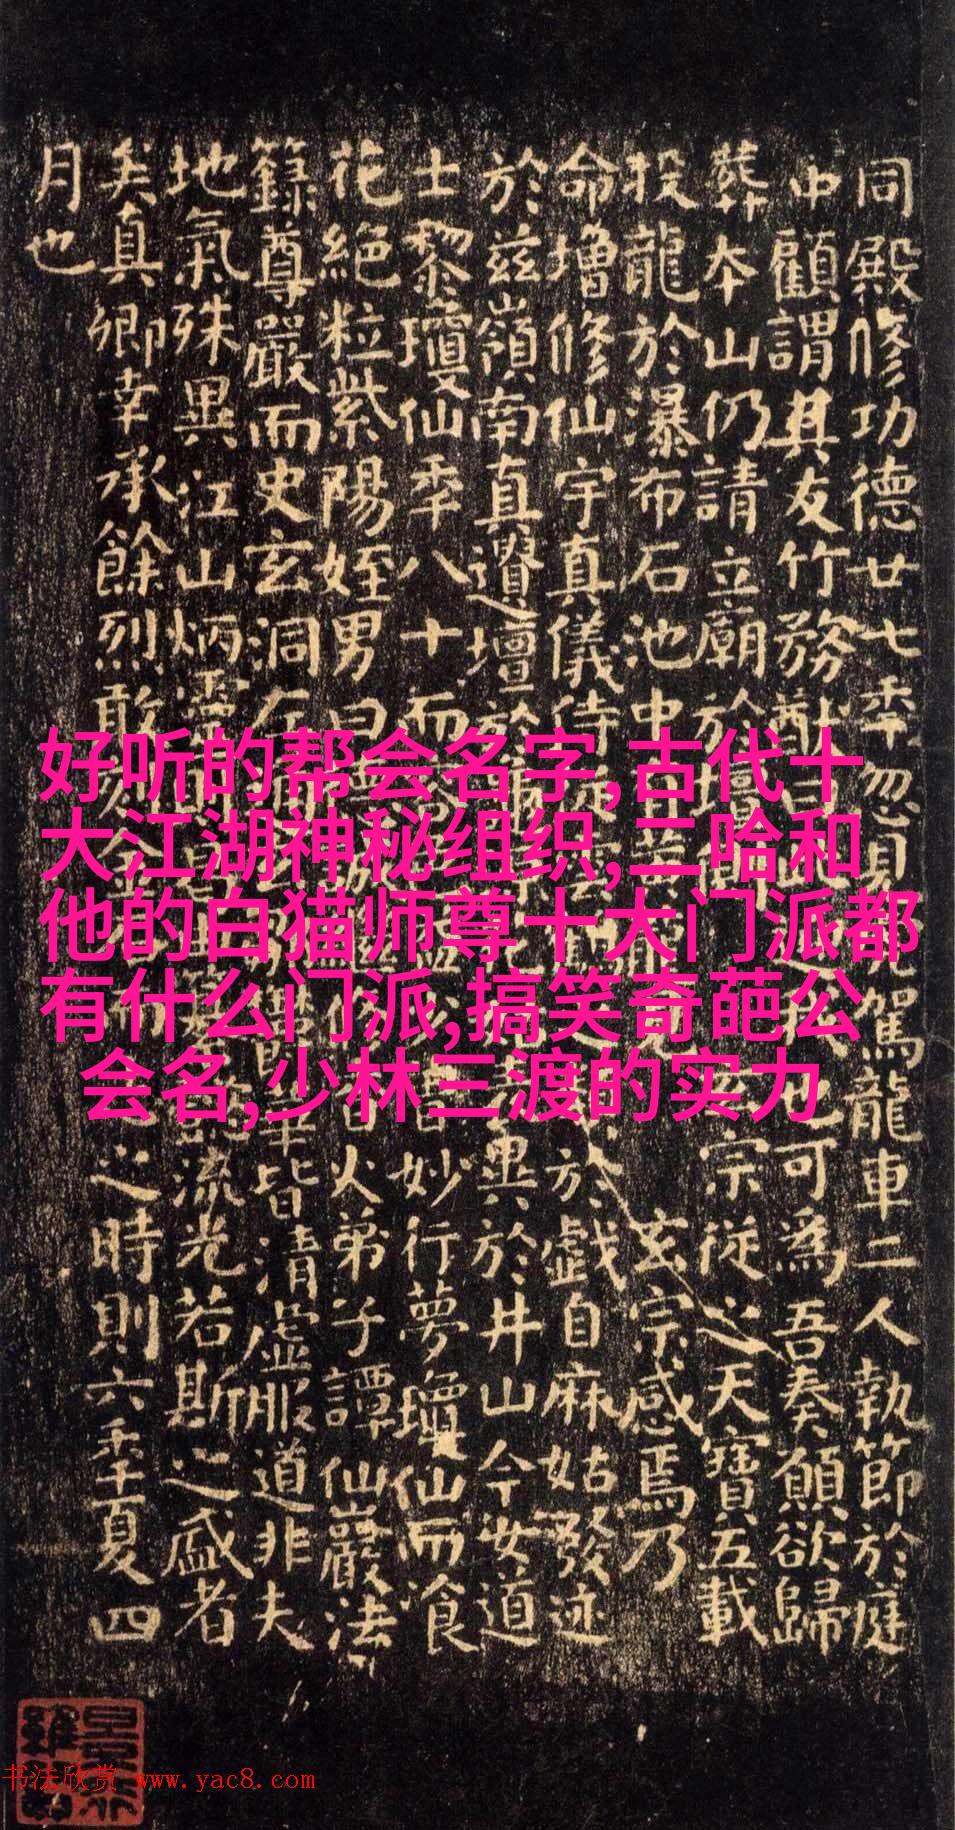 好听的帮会名字,古代十
大江湖神秘组织,二哈和
他的白猫师尊十大门派都
有什么门派,搞笑奇葩公
会名,少林三渡的实力
同殿修功德廿七季忽見駕龍車二人執節於庭
中顧謂其友竹務猷曰也可為吾奏願欲歸
葬本山仍請立廟於壇側宗從之天寶五載
投龍於瀑布石池中見玄宗感焉乃
命增修仙宇真儀侍從雲於戲自麻姑發迹
於兹嶺南真遺壇於異於井山今女道
士黎瓊仙季八十而容妙行夢瓊仙而飡
花絕粒紫陽姪男曰火弟子譚仙巖法
籙尊嚴而史玄洞左華皆清虛服道非夫
地氣殊異江山炳靈流光若斯之盛者
矣真卿幸承餘烈敢刻金之時則六季夏四
月也
书法欣赏 www.yac8.com